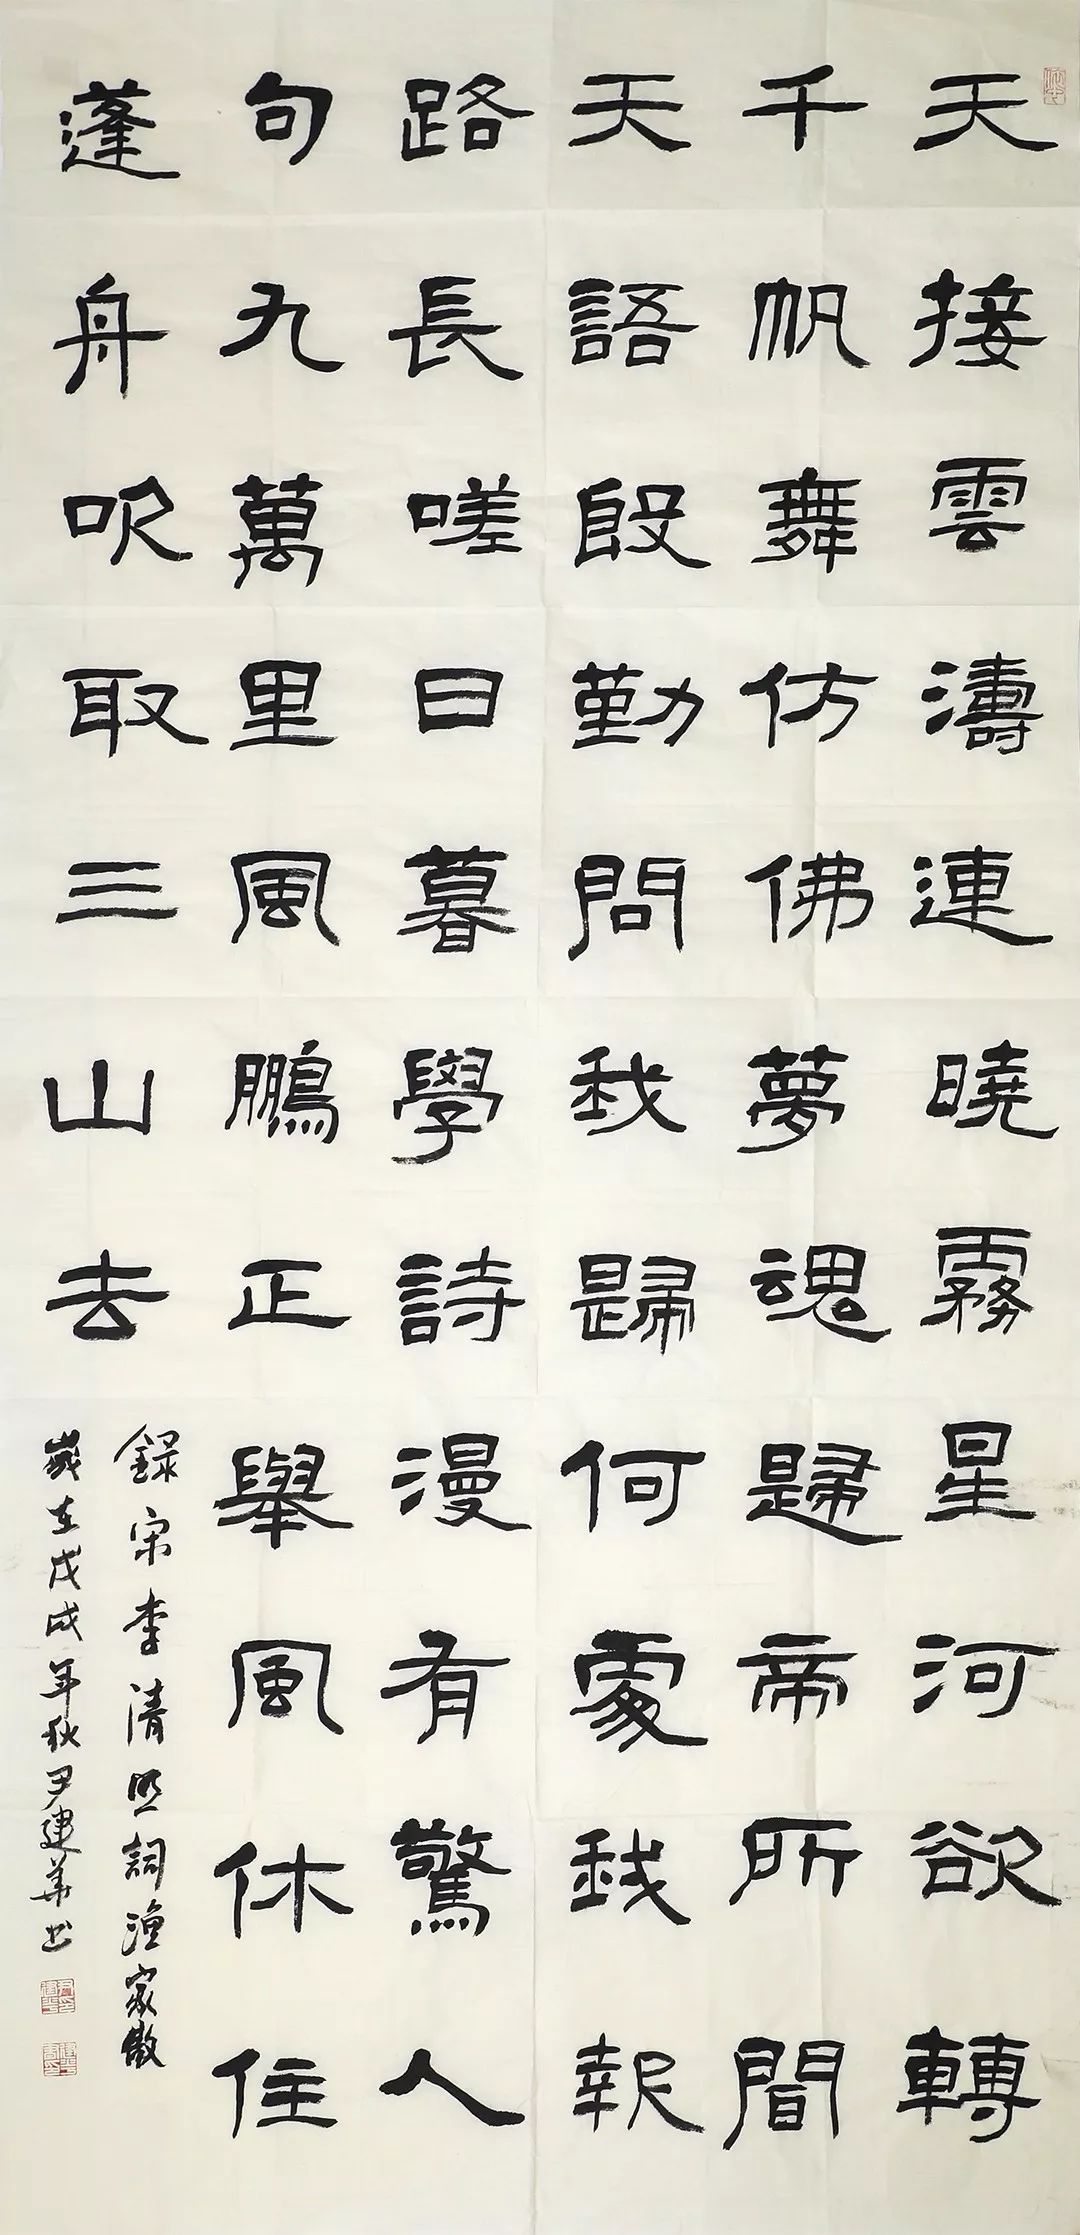 天接雲濤連曉霧星河欲轉
千帆舞仿佛夢魂歸帝所聞
天語殷勤問我歸何處我報
路長嗟日暮學詩漫有驚人
句九萬里風鵬正舉風休住
蓬舟吹取三山去
録宋李清照詞漁家傲
歲在戊戌年秋尹建華书